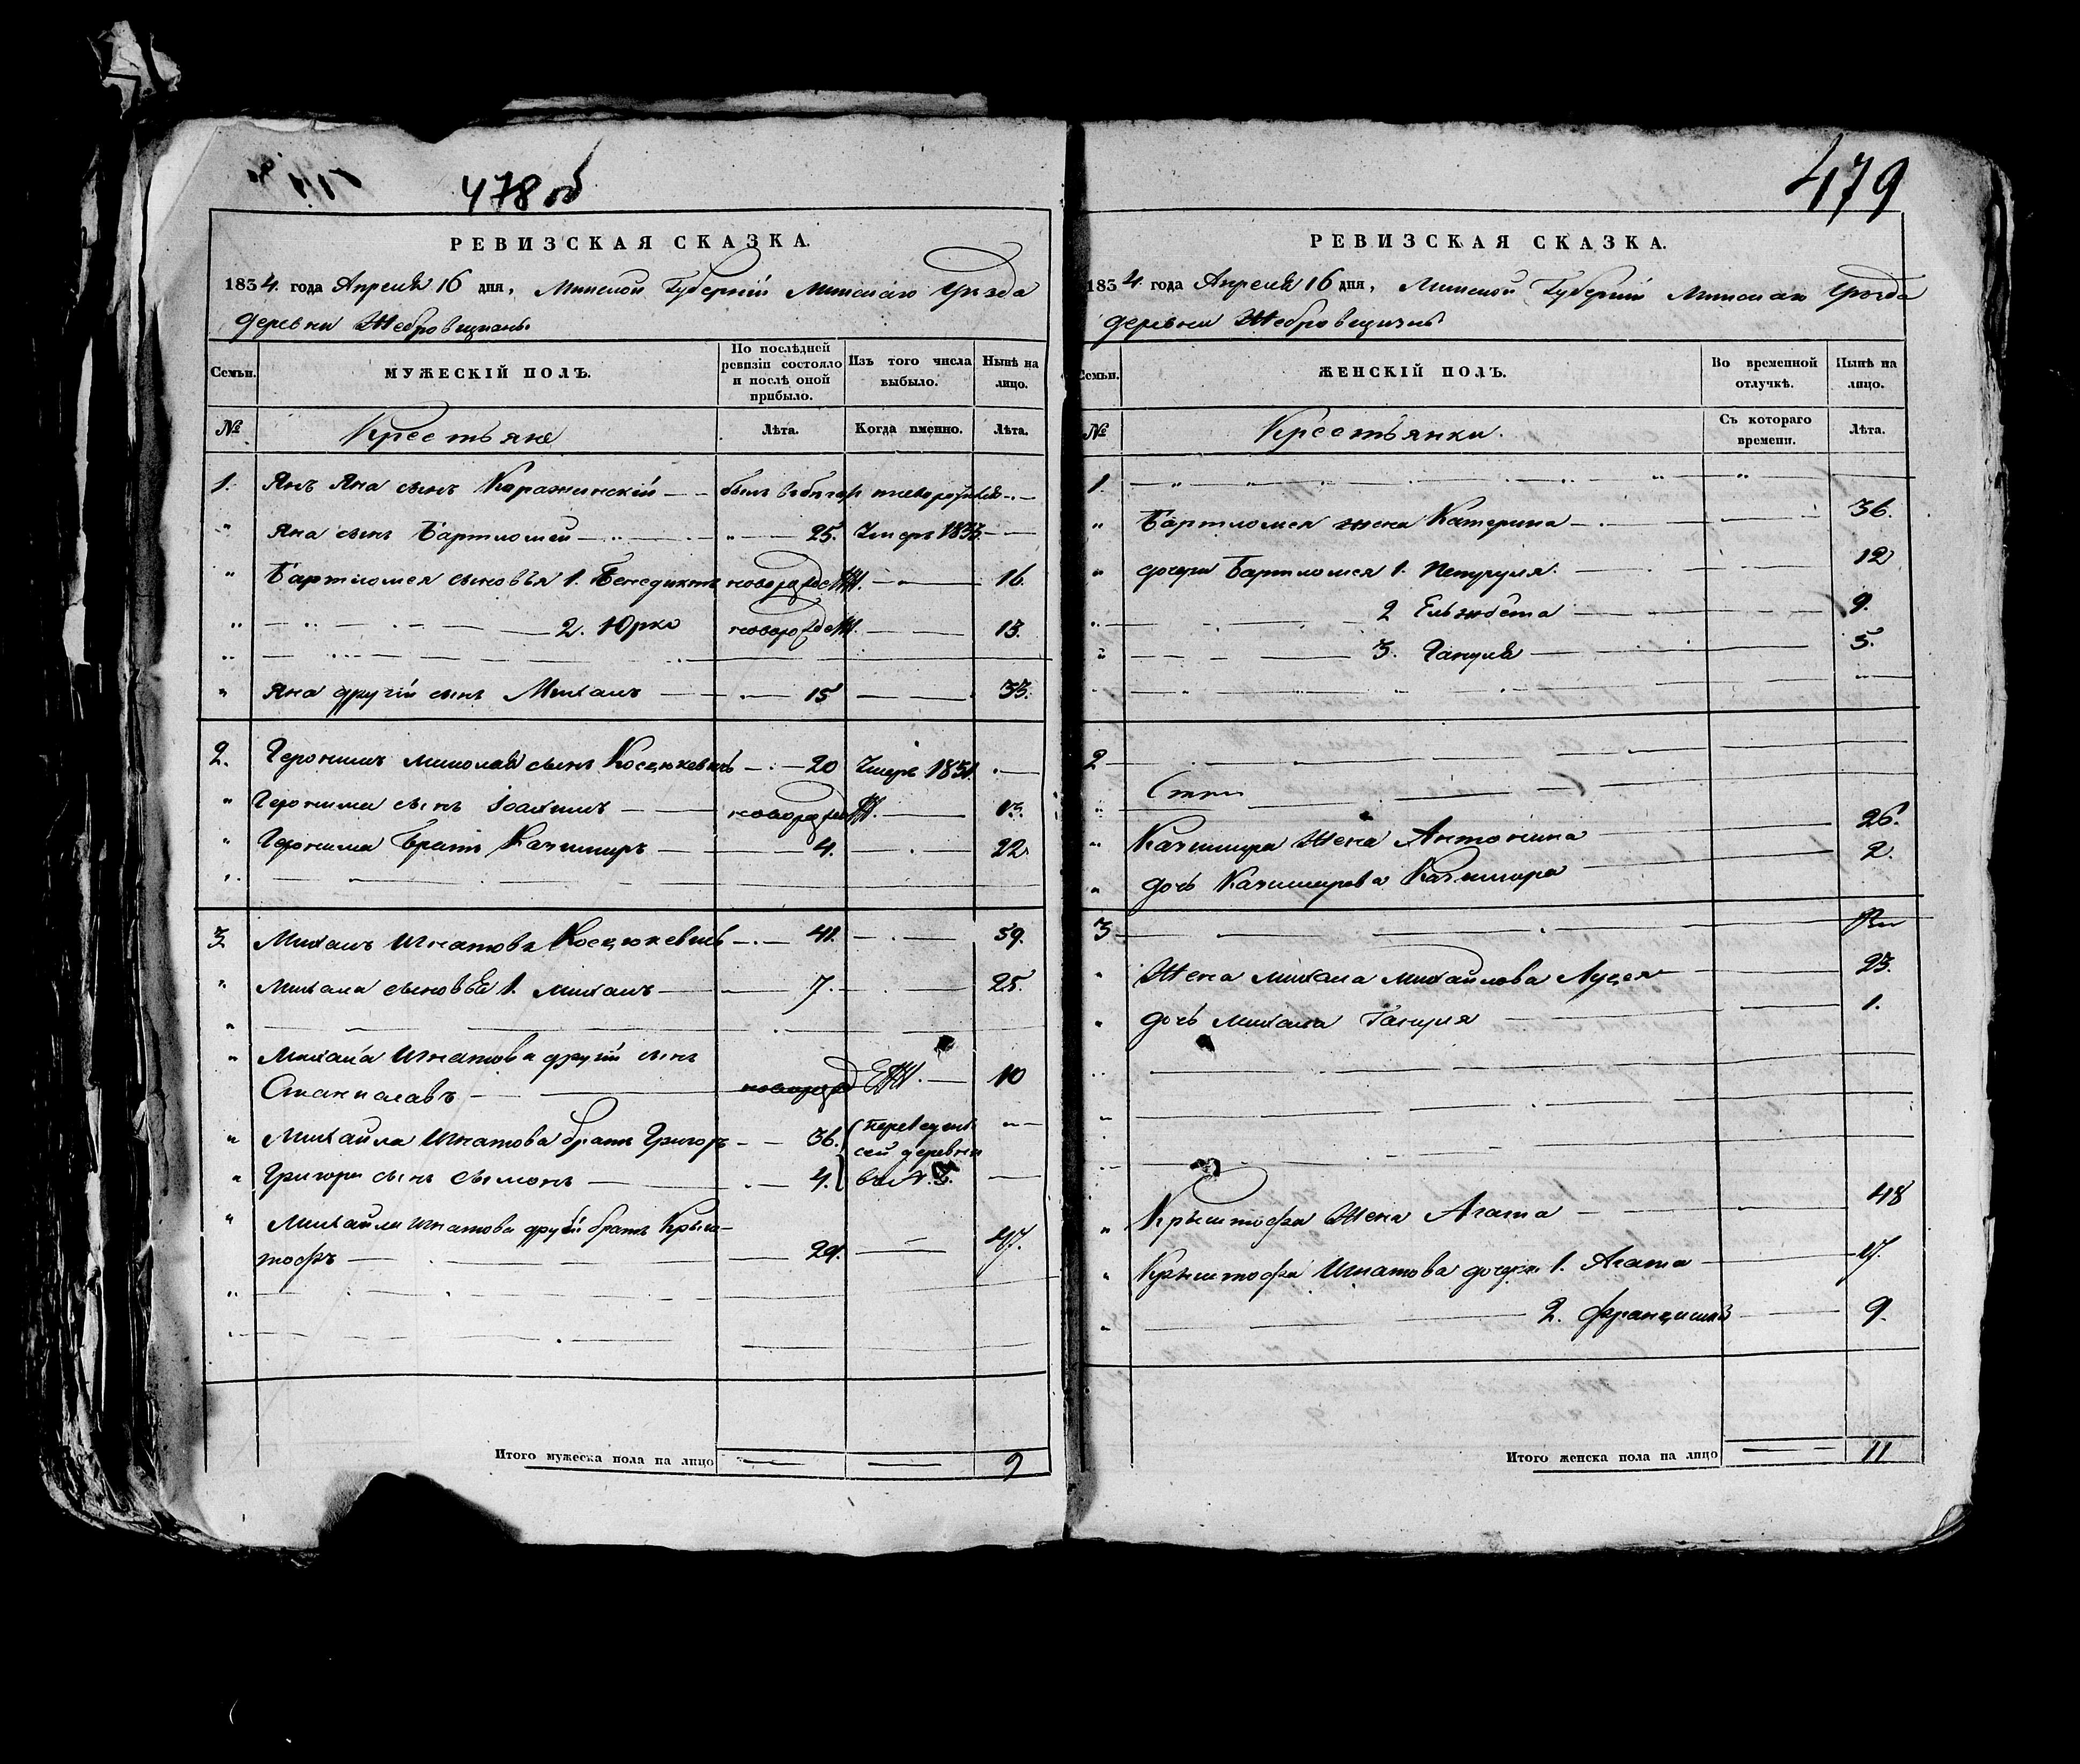 478 об
РЕВИЗСКАЯ СКАЗКА.
1834. года Апреля 16 дня, Минской Губерніи Минскаго Уѣзда
деревни Жебровщизны
Семьи.
МУЖЕСКІЙ ПОЛЪ.
По послѣдней ревизіи состояло и послѣ оной прибыло.
Изъ того числа выбыло.
Нынѣ на лицо.
№
Крестьяне
Лѣта.
Когда именно.
Лѣта.
1. Янъ Яна сынъ
" Яна сынъ Бартломей 25. Умеръ 1833.
" Бартломея сыновья 1. Бенедиктъ 16.
" 2. Юрко 13.
" Яна другій сынъ Михалъ 15 33.
2. Героним сынъ Косцюкевичъ 20 Умеръ 1831
" Геронима сынъ Іоахимъ 13.
" Геронима Братъ Казимиръ 4. 22.
3. Михалъ Игнатова Косцюкевичъ 41. 59.
" Михала сыновья 1. Михалъ 7. 25.
" Михала Игнатова другій сынъ
Станиславъ 10
" Михайла Игнатова братъ Григоръ 36.
сей деревни
" Григори сынъ Сымонъ 4. в №
" Михайли Игнатова другій братъ Крыш-
тофъ 29. 47.
Итого мужеска пола на лицо 9
479
РЕВИЗСКАЯ СКАЗКА.
1834. года Апреля 16 дня, Минской Губерніи Минскаго Уѣзда
деревни Жебровщизны
Семьи.
ЖЕНСКІЙ ПОЛЪ.
Во временной отлучкѣ.
Нынѣ на лицо.
№
Крестьянки.
Съ котораго времени.
Лѣта.
1.
" Бартломея жена Катерина 36.
" дочери Бартломея 1. Петруля 12
2 Ельжбета 9.
" 3. Гануля 5.
2
" Казимира Жена Антонина 26.
" дочь Казимирова Казимира 2.
3
" Жена Михала Михайлова Луцея 23.
" дочь Михала Гануля 1.
" Крыштофа Жена Агата 48
" Крыштофа Игнатова дочери 1. Агата 17.
" 2. Францишка 9.
Итого женска пола на лицо 11